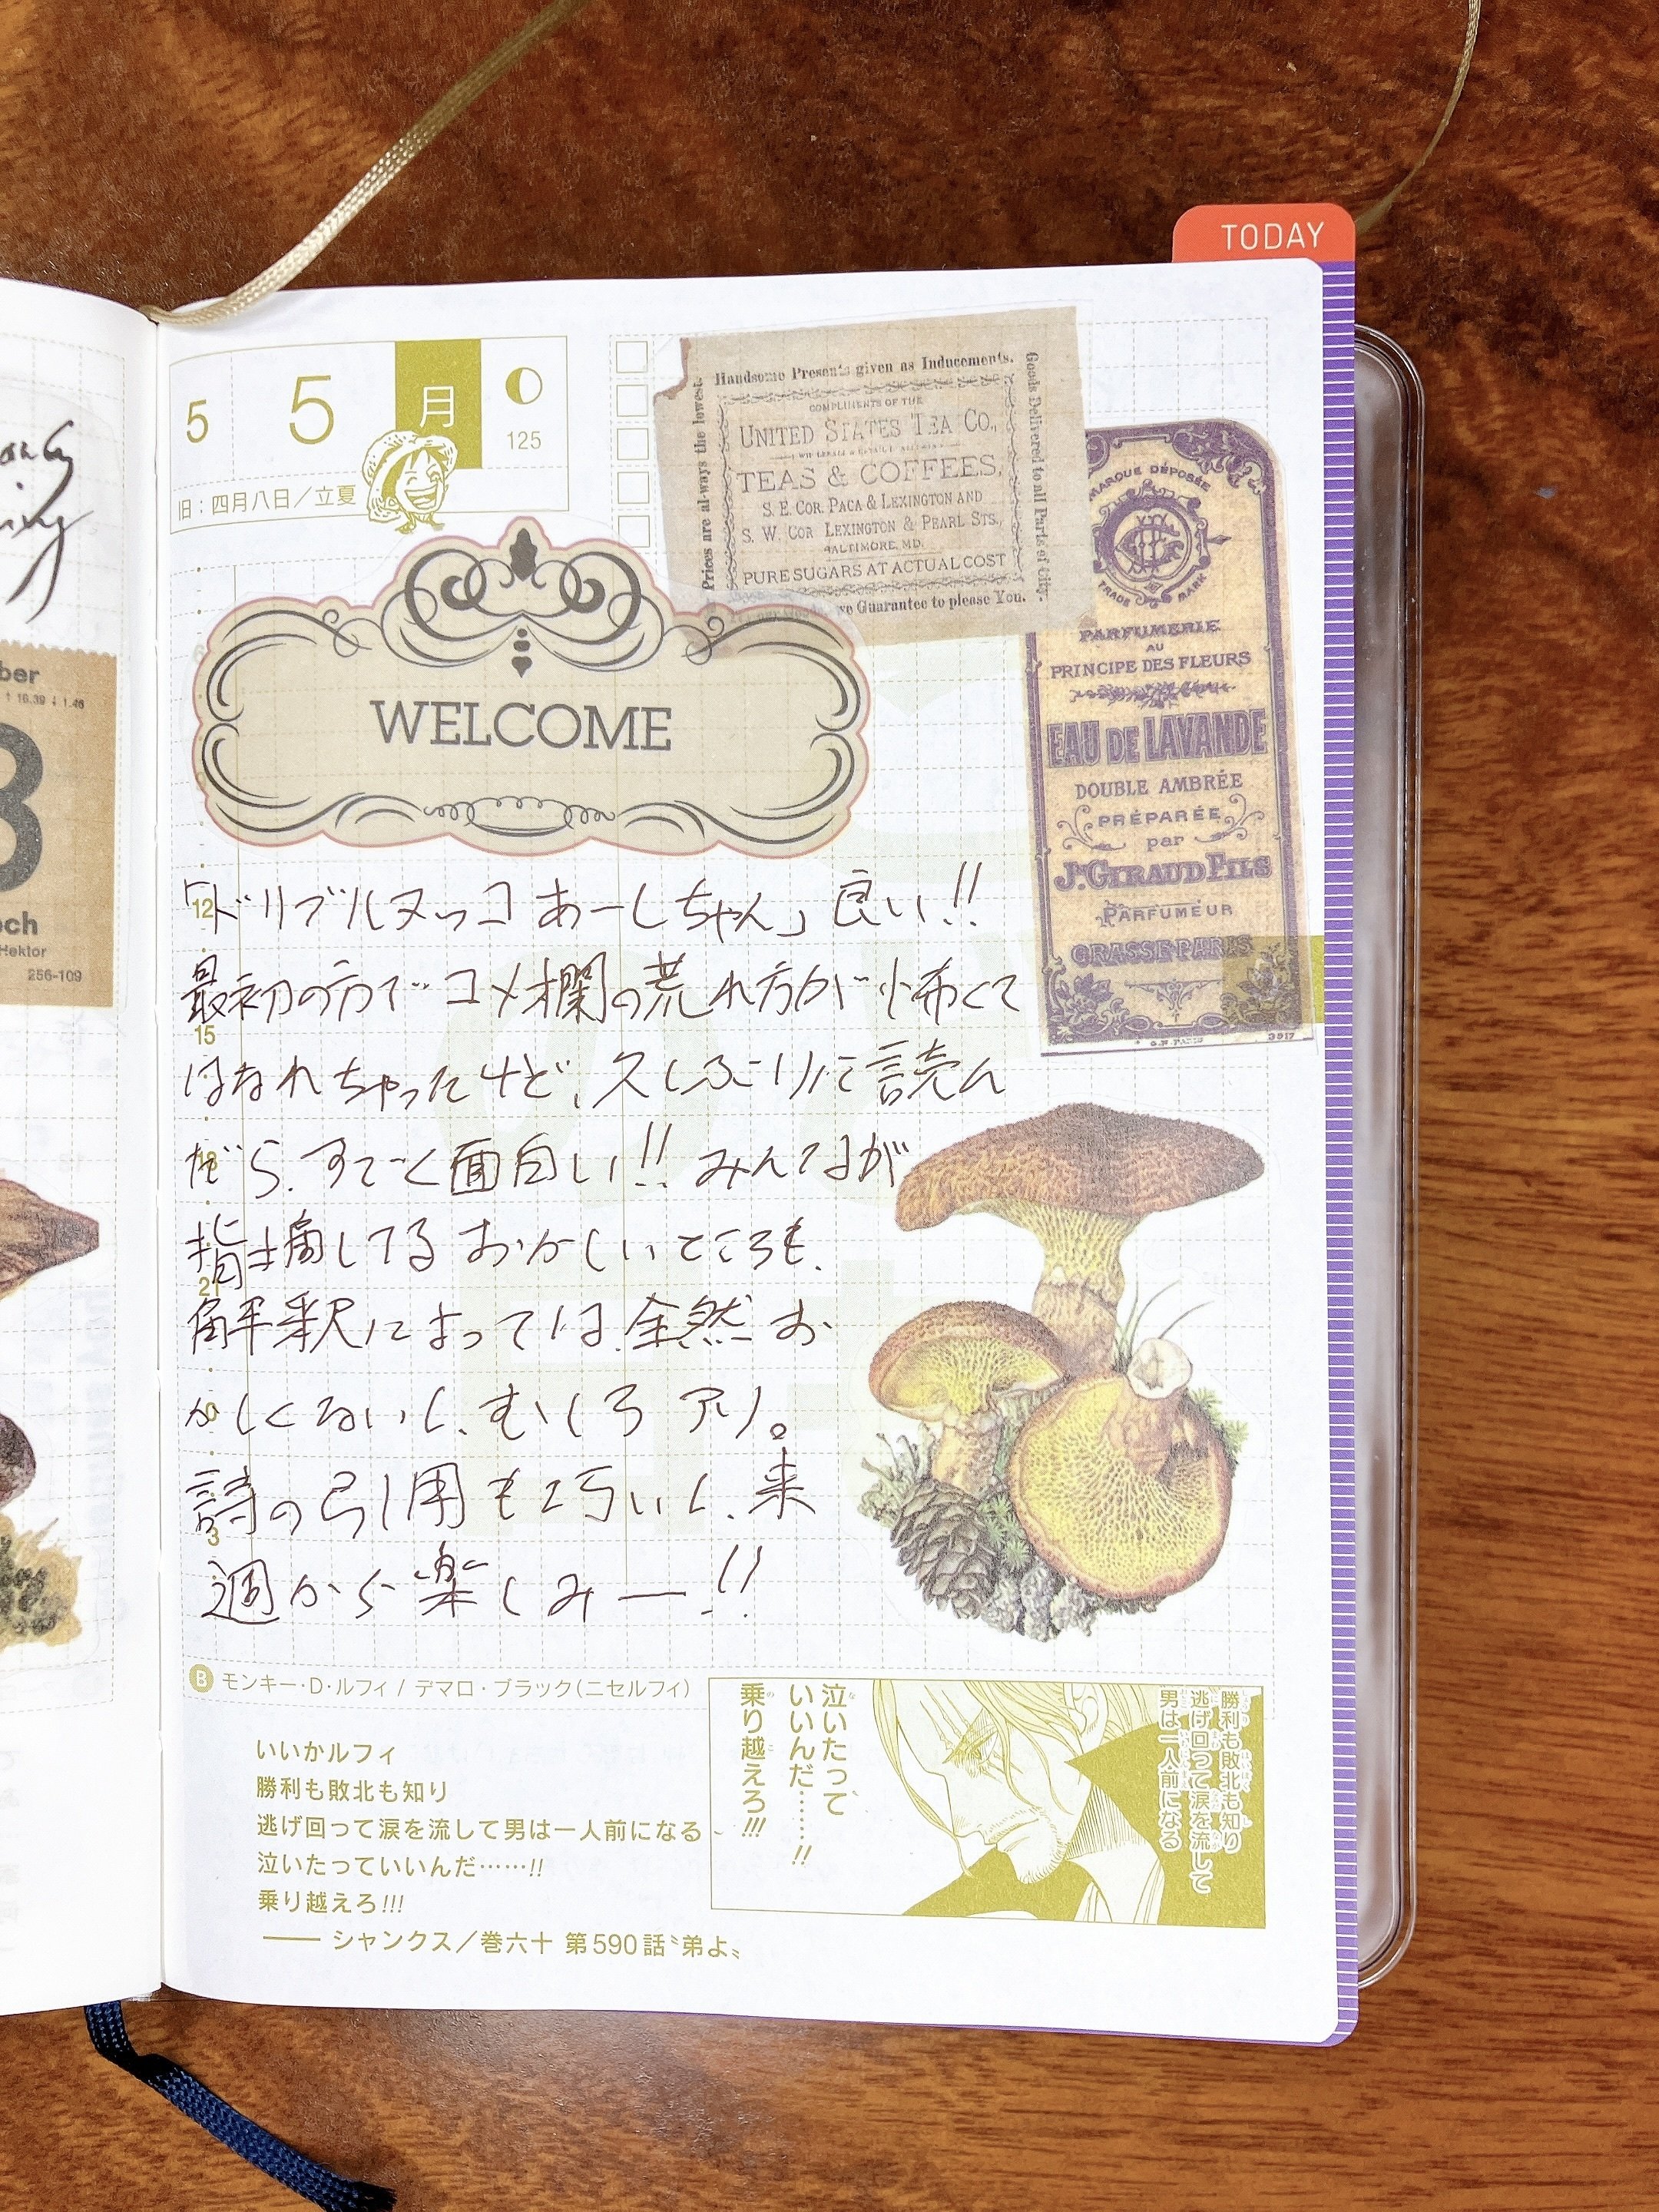 TODAY
5
5
月
125
旧：四月八日／立夏
Handsome Presents given as Inducements.
Prices are al-ways the lowest.
Goods Delivered to all Parts of City.
COMPLIMENTS OF THE
UNITED STATES TEA CO.,
TEAS & COFFEES,
S. E. COR. PACA & LEXINGTON AND
S. W. COR LEXINGTON & PEARL STS.,
BALTIMORE, MD.
PURE SUGARS AT ACTUAL COST
we Guarantee to please You.
MARQUE DÉPOSÉE
TRADE MARK
PARFUMERIE
AU
PRINCIPE DES FLEURS
EAU DE LAVANDE
DOUBLE AMBRÉE
PRÉPARÉE
par
Jh GIRAUD FILS
PARFUMEUR
GRASSE-PARIS
G.N. PARIS
3917
WELCOME
「ドリブルヌッコあーしちゃん」良い!!
最初の方でコメ欄の荒れ方が怖くて
はなれちゃったけど、久しぶりに読ん
だら、すごく面白い!! みんなが
指摘してるおかしいところも、
解釈によっては全然お
かしくないし、むしろアリ。
詩の引用も巧いし、来
週から楽しみー!!
12
15
18
21
0
3
ber
16.39
1.46
8
och
Hektor
256-109
B モンキー・D・ルフィ / デマロ・ブラック（ニセルフィ）
いいかルフィ
勝利も敗北も知り
逃げ回って涙を流して男は一人前になる
泣いたっていいんだ……!!
乗り越えろ!!!
―― シャンクス／巻六十 第590話〝弟よ〟
勝利も敗北も知り
逃げ回って涙を流して
男は一人前になる
泣いたって
いいんだ……!!
乗り越えろ!!!